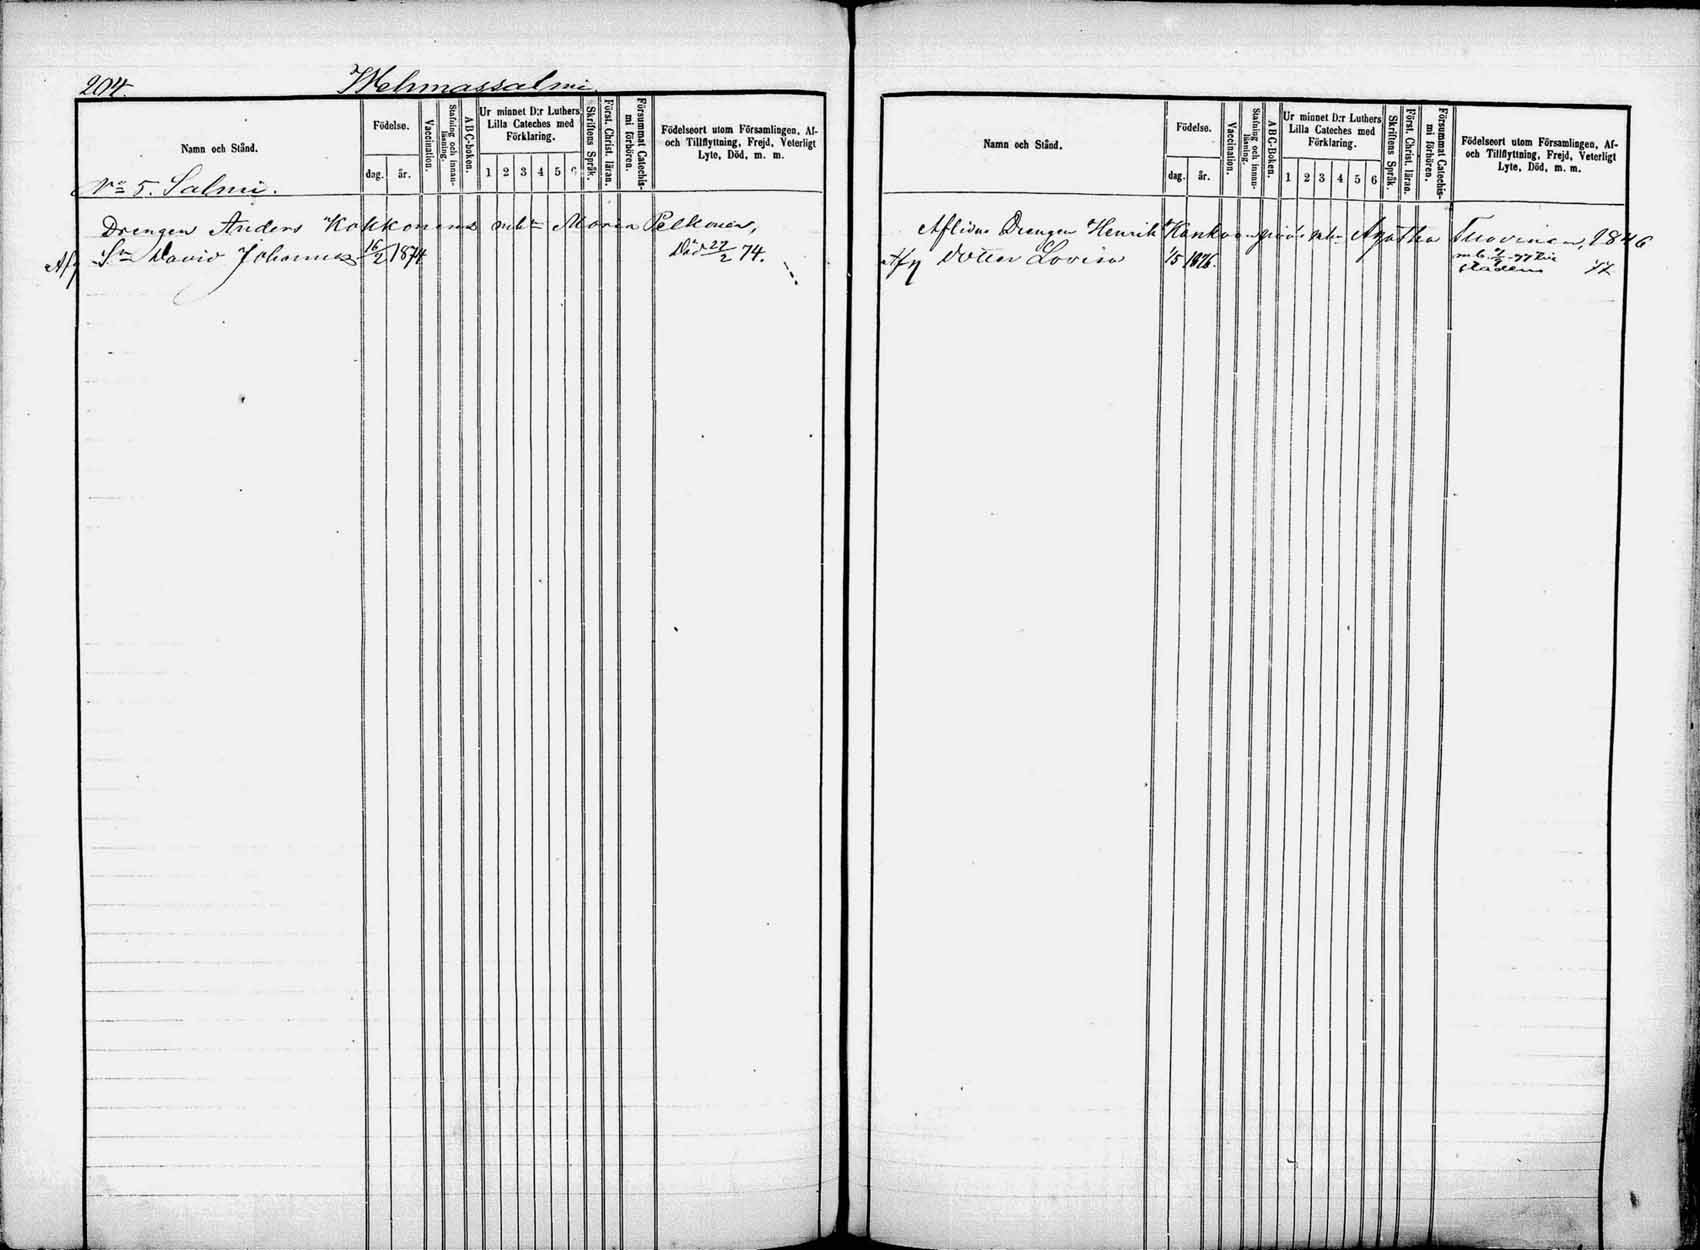 204.
Wehmassalmi.
Namn och Stånd.
Födelse.
dag.
år.
Vaccination.
Stafning och innan-
läsning.
ABC-boken.
Ur minnet D:r Luthers
Lilla Cateches med
Förklaring.
1 2 3 4 5 6
Skriftens Språk.
Först. Christ. läran.
Försummat Catechis-
mi förhören.
Födelseort utom Församlingen, Af-
och Tillflyttning, Frejd, Veterligt
Lyte, Död, m. m.
No 5. Salmi.
Drengen Anders Kokkonens m. h. Maria Pelkonen,
Sn David Johannes 16/2 1874 Död 27/2 74.
Namn och Stånd.
Födelse.
dag.
år.
Vaccination.
Stafning och innan-
läsning.
ABC-Boken.
Ur minnet D:r Luthers
Lilla Cateches med
Förklaring.
1 2 3 4 5 6
Skriftens Språk.
Först. Christ. läran.
Försummat Catechis-
mi förhören.
Födelseort utom Församlingen, Af-
och Tillflyttning, Frejd, Veterligt
Lyte, Död, m. m.
Aflidne Drengen Henrik Agatha Tuovinen, 1846
Dotter Lovisa 1/5 1876.
staden 77